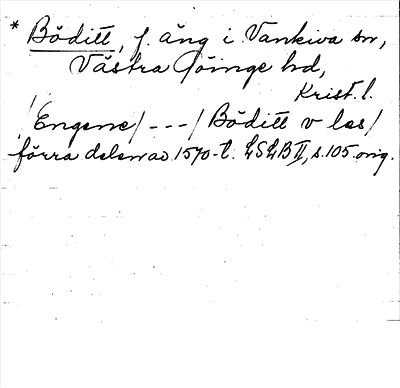 * Böditt, f. äng i Vankiva sn,
Västra Göinge hd,
Krist. l.
/Engene/ - - - / Böditt v las/
förra delen av 1570-t. LSLB II, s. 105. orig.